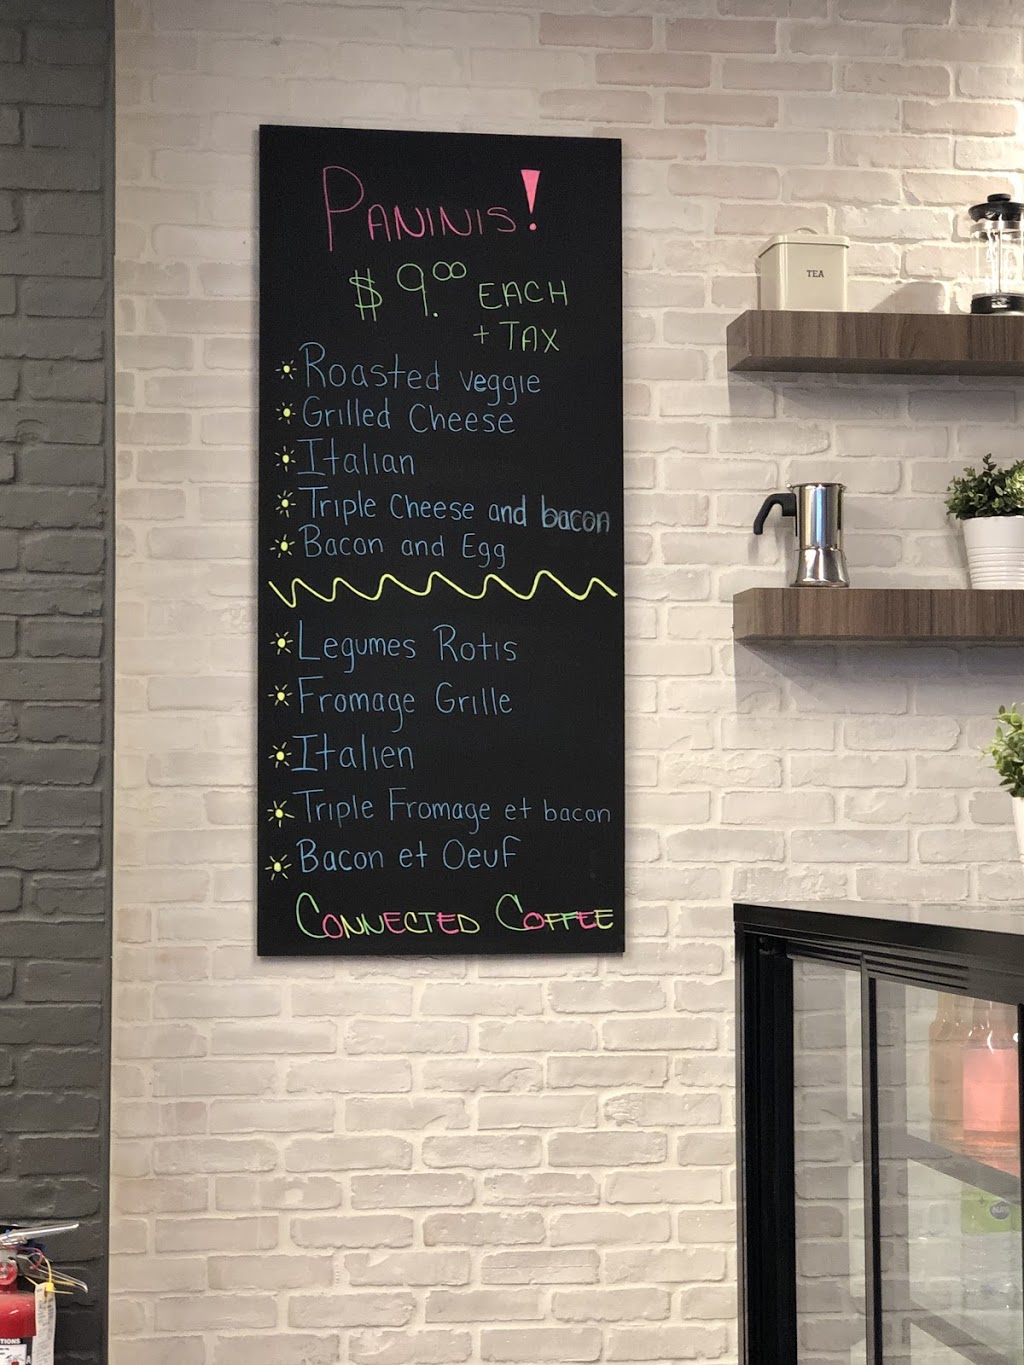 PANINIS!
$9.00 EACH
+ TAX
Roasted veggie
Grilled Cheese
Italian
Triple cheese and bacon
Bacon and Egg
Legumes Rotis
Fromage Grille
Italien
Triple Fromage et bacon
Bacon et Oeuf
CONNECTED COFFEE
TEA